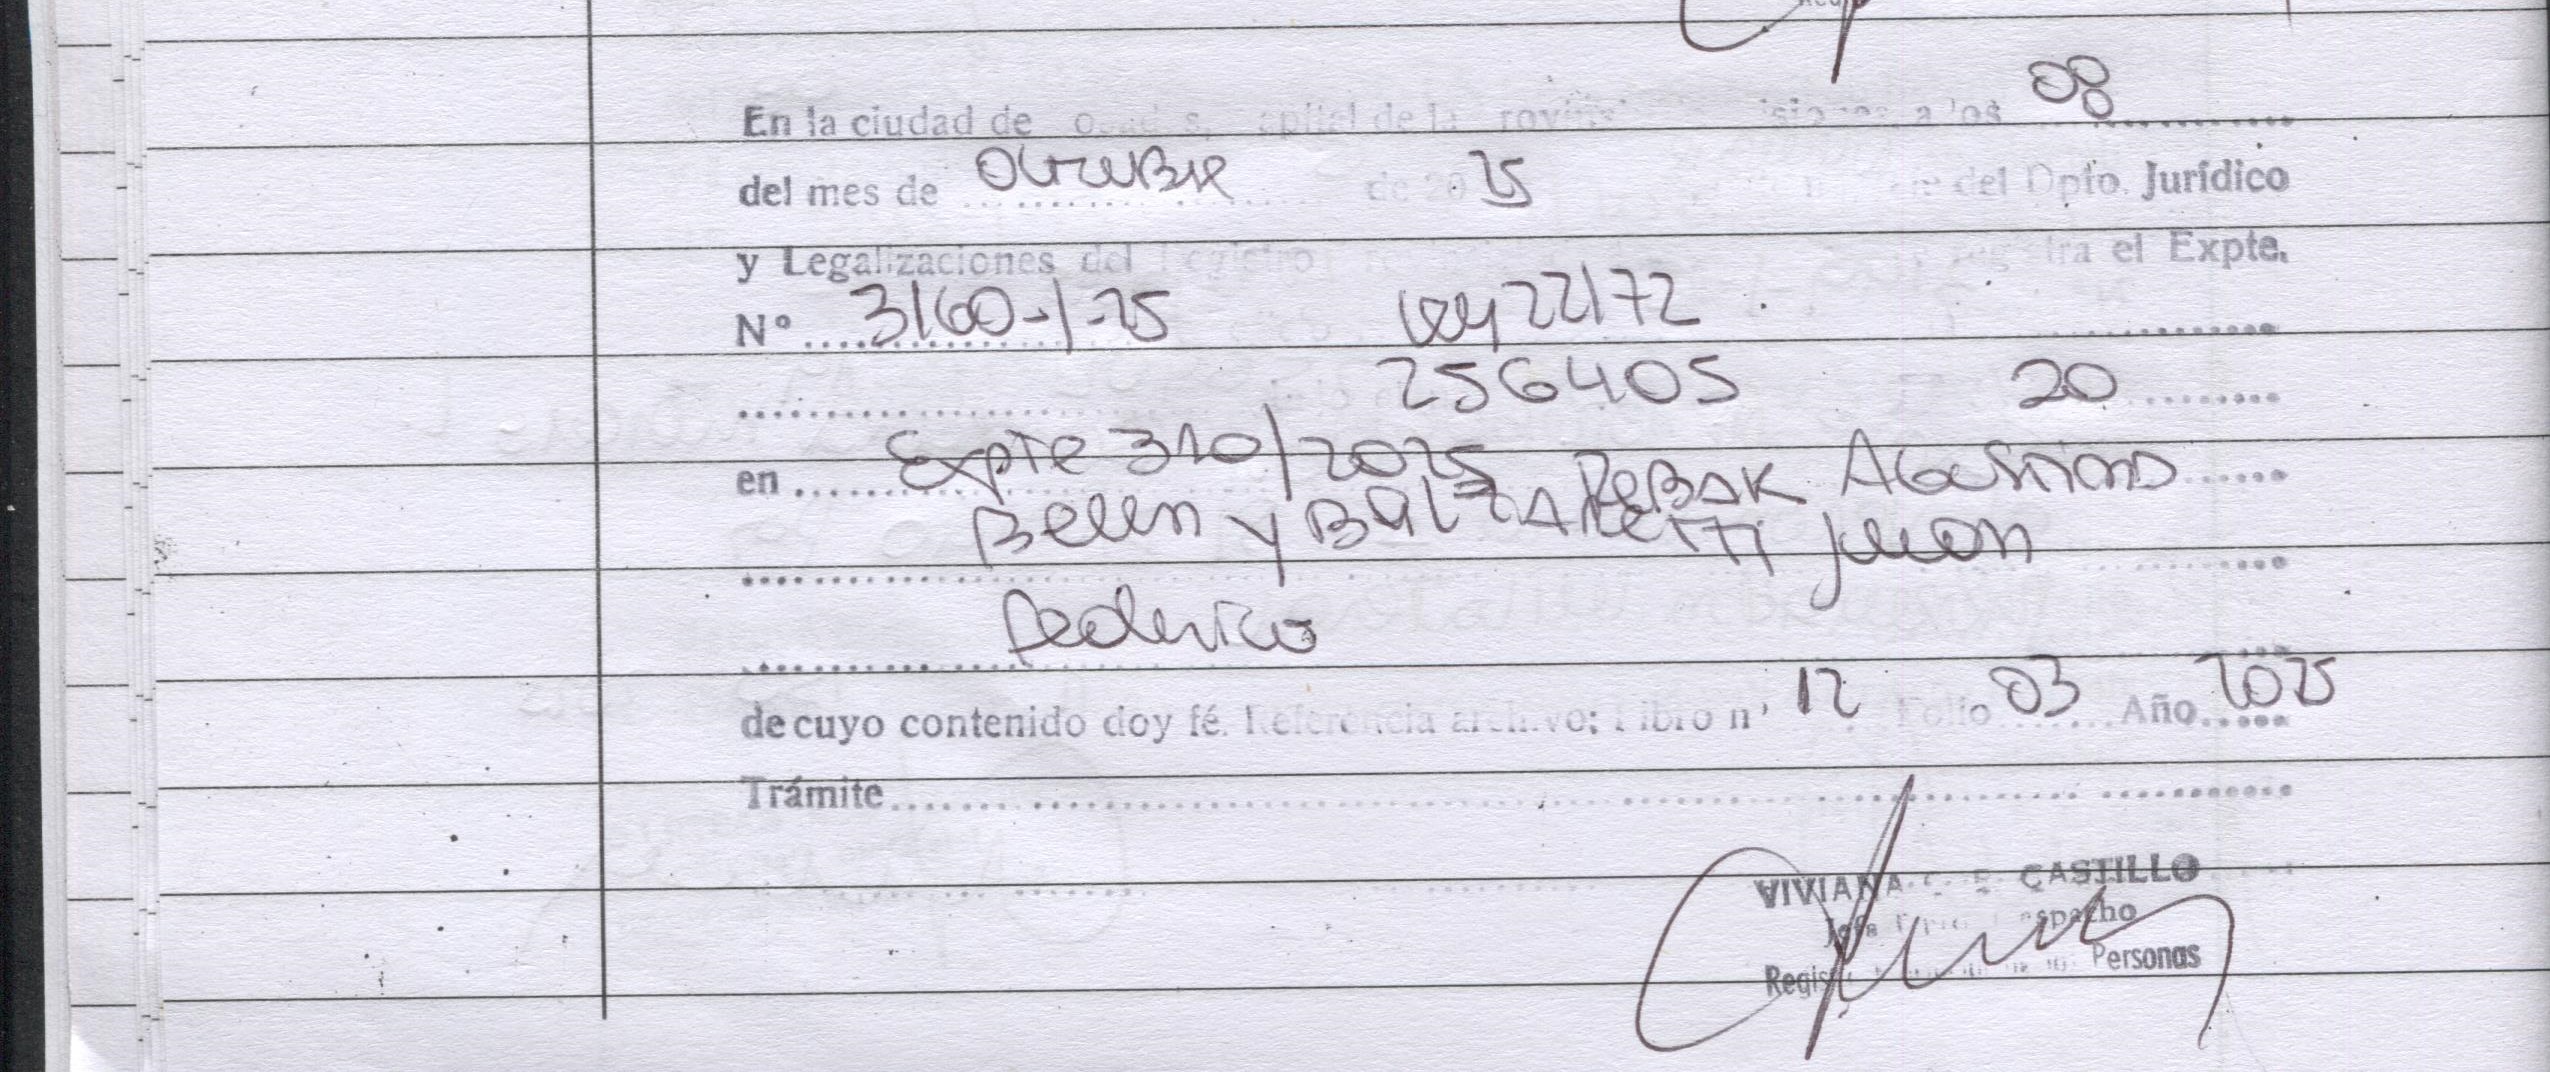 08
En la ciudad de capital de la a los
del mes de Octubre de 20 25 del Dpto. Jurídico
y Legalizaciones del Registro registra el Expte.
Nº 3160-1-25 22172
256405 20
en Expte 310/2025 Rebak Agustina
Belen y Balzaretti Juan
Federico
de cuyo contenido doy fé. Referencia archivo; Libro nº 12 Folio 03 Año 2025
Trámite
VIVIANA CASTILLO
Jefa Despacho
Personas